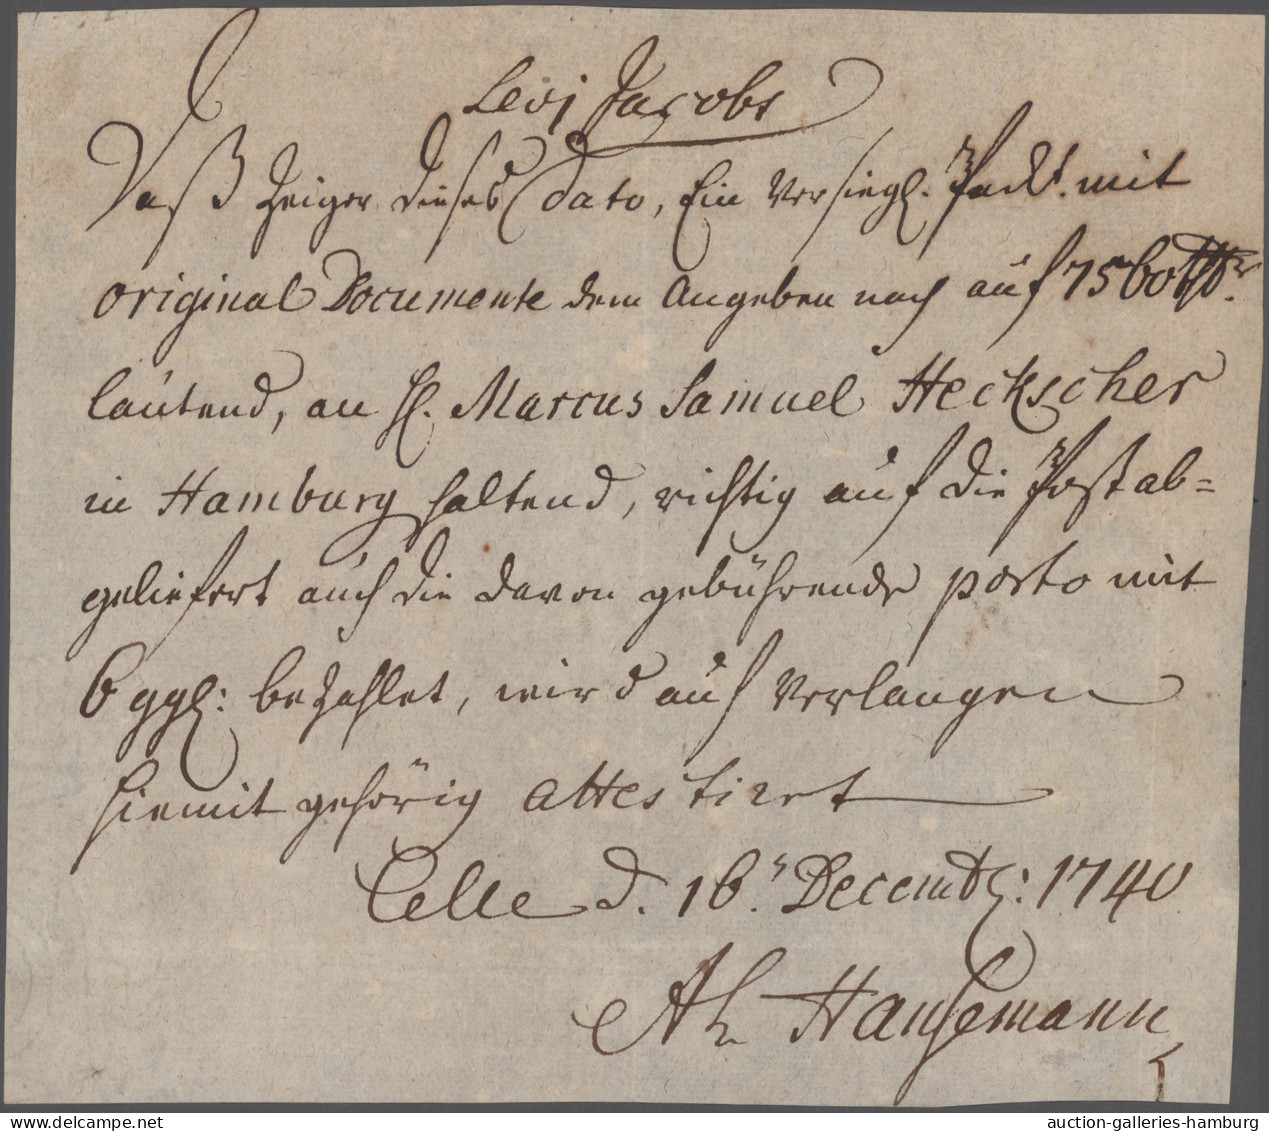 Levi Jacobs
Daß Zeiger dieses Dato, Ein versiegl. Packt. mit
original Documente dem Angeben nach auf 7560
lautend, an H. Marcus Samuel Heckscher
in Hamburg haltend, richtig auf die Post ab=
geliefert auch die davon gebührende porto mit
6 ggl: bezahlet, wird auf Verlangen
hiemit gehörig attestiret
Celle d. 16. Decembr: 1740
Hansemann
auction-galleries-hamburg